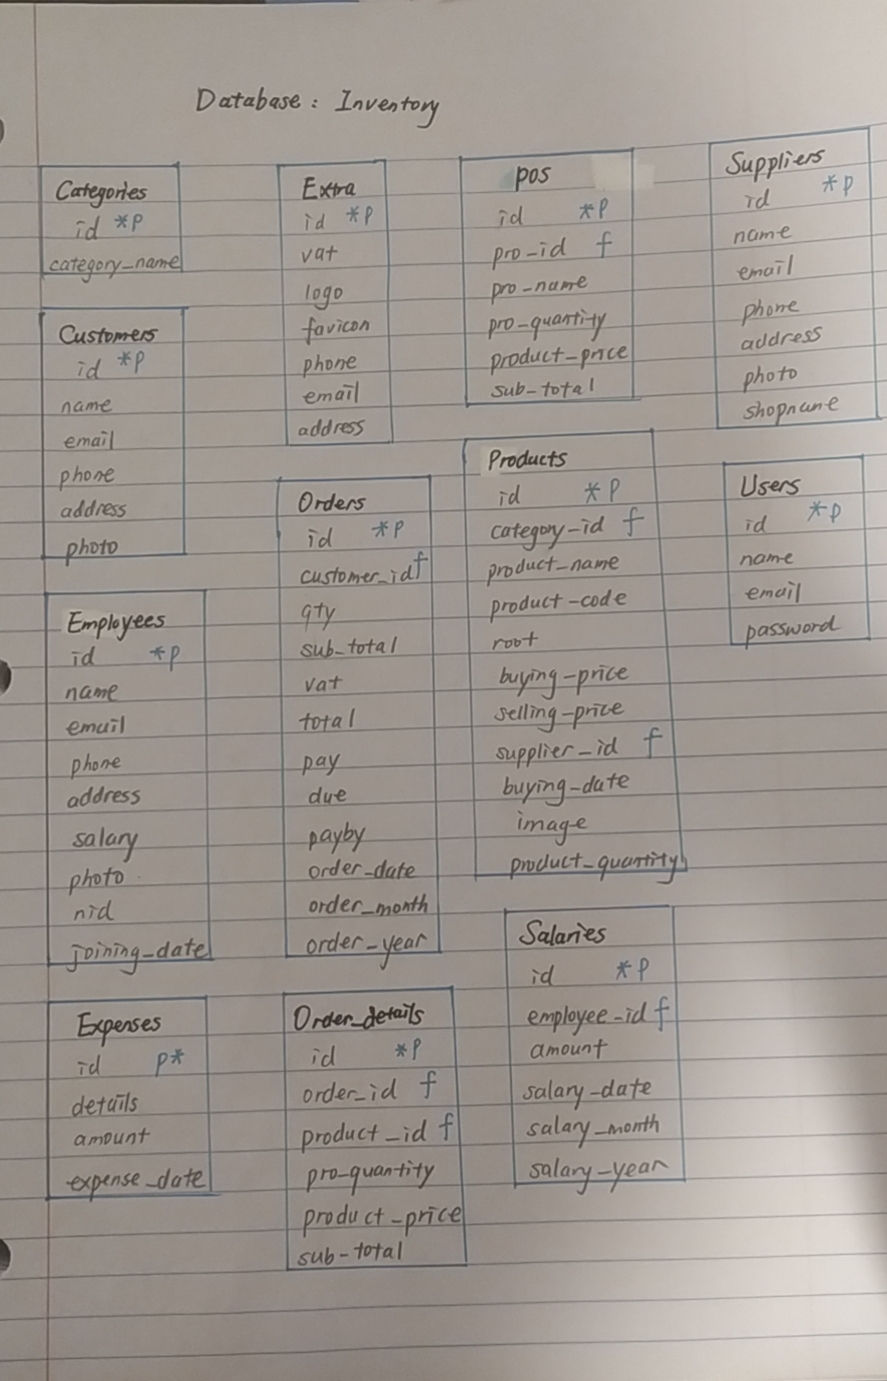 Database : Inventory
Categories
id *P
category_name
Customers
id *P
name
email
phone
address
photo
Employees
id *P
name
email
phone
address
salary
photo
nid
joining_date
Expenses
id P*
details
amount
expense_date
Extra
id *P
vat
logo
favicon
phone
email
address
Orders
id *P
customer_id f
qty
sub_total
vat
total
pay
due
payby
order_date
order_month
order_year
Order_details
id *P
order_id f
product_id f
pro-quantity
product_price
sub-total
pos
id *P
pro-id f
pro-name
pro-quantity
product_price
sub-total
Products
id *P
category-id f
product_name
product-code
root
buying-price
selling-price
supplier_id f
buying-date
image
product_quantity
Salaries
id *P
employee-id f
amount
salary_date
salary_month
salary-year
Suppliers
id *P
name
email
phone
address
photo
shopname
Users
id *P
name
email
password